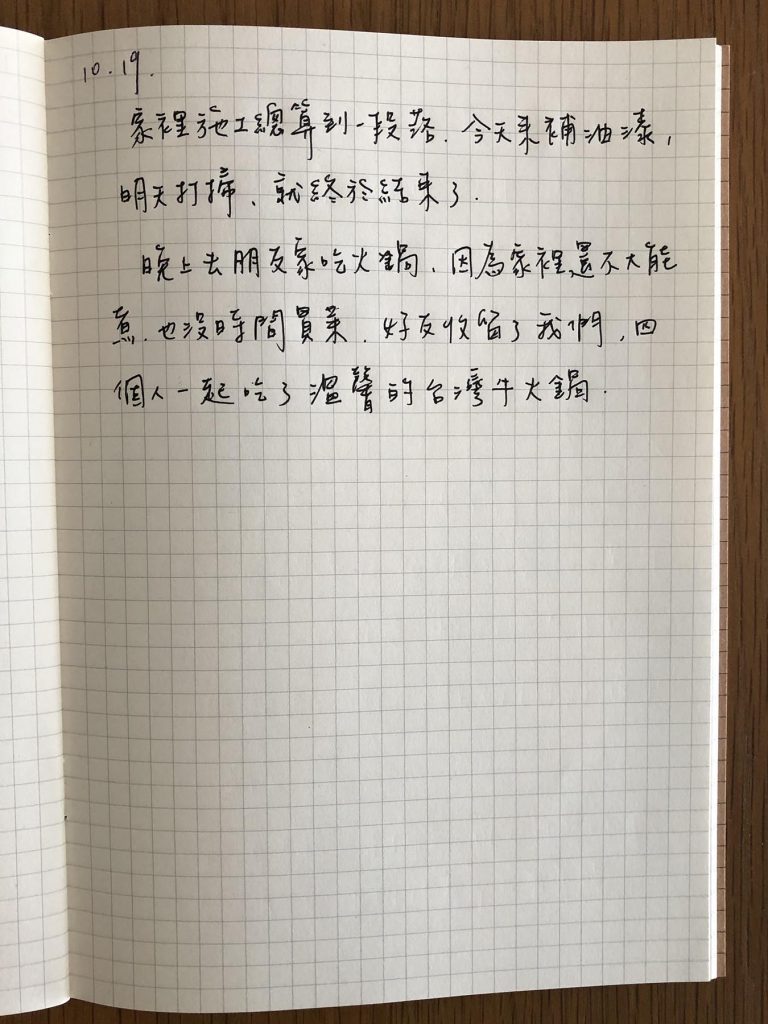 10.19.
家裡施工總算到一段落.今天來補油漆,
明天打掃、就終於結束了.
晚上去朋友家吃火鍋、因為家裡還不大能
煮.也沒時間買菜.好友收留了我們,四
個人一起吃了溫馨的台灣牛火鍋.